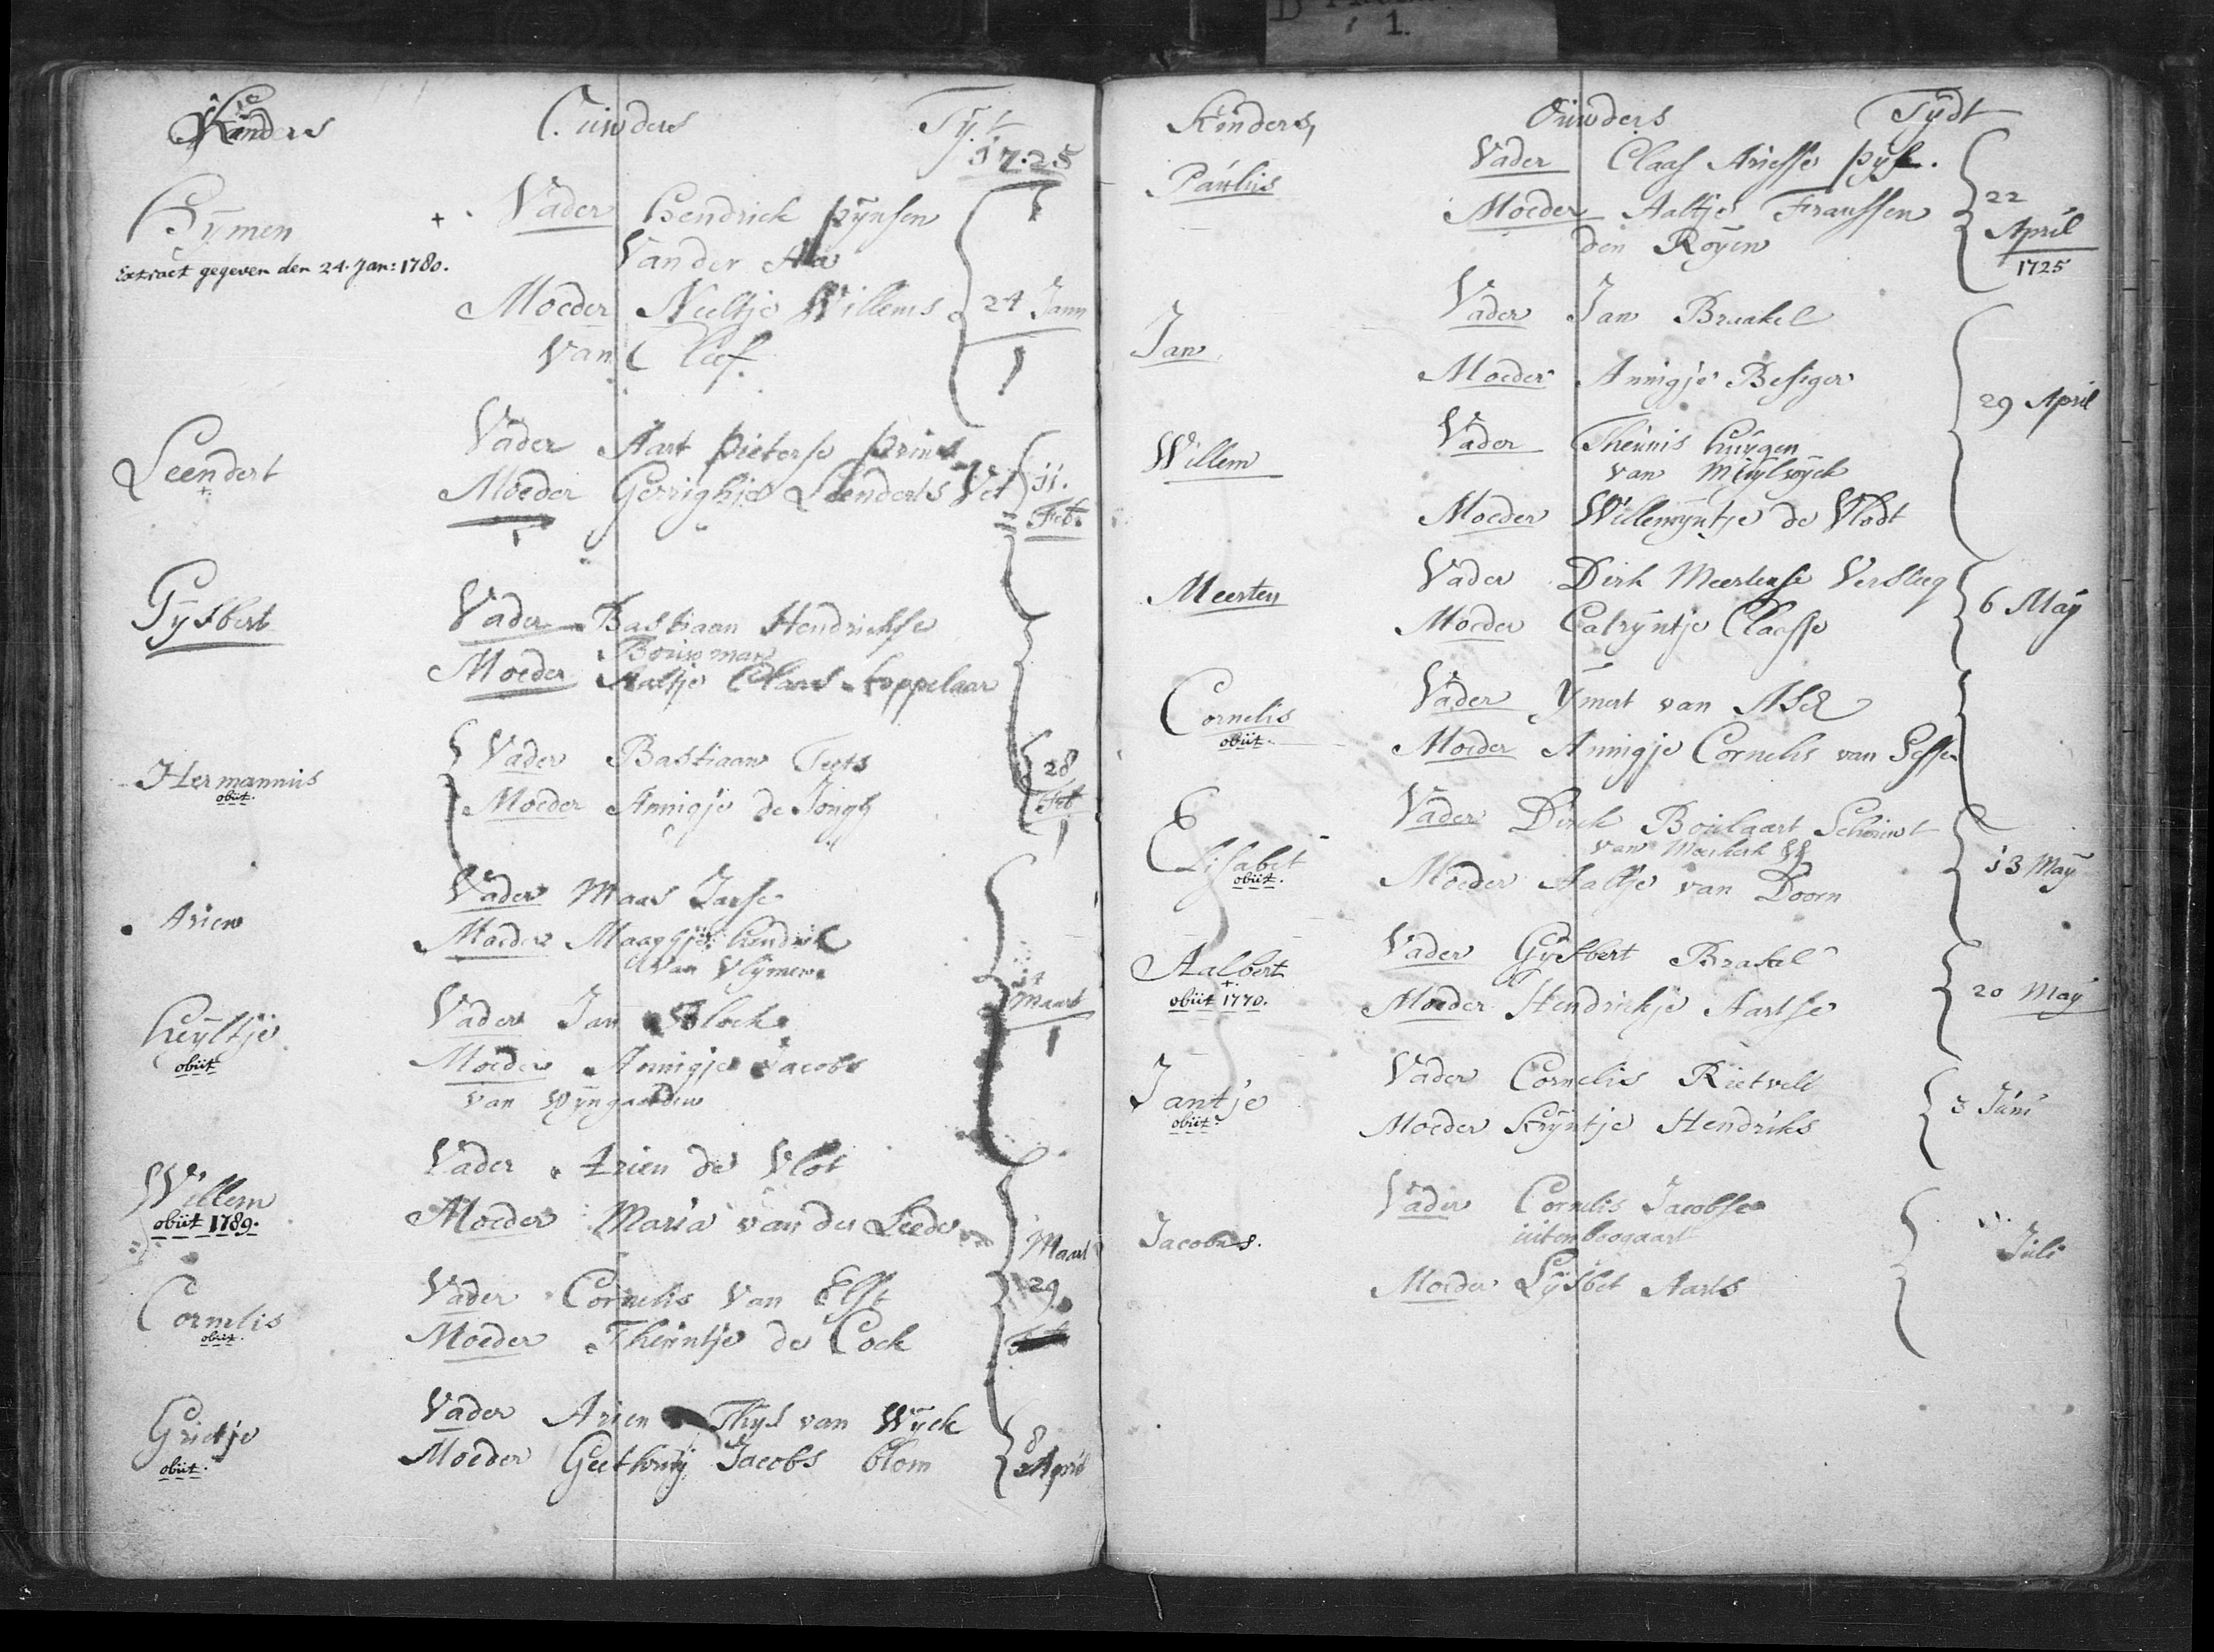 Kinders Ouwders Tyt
1725
Pymen + Vader Hendrick pynsen
Extract gegeven den 24. Jan: 1780. Van der Aa
Moeder Neeltje Willems 24 Jann
van Cleef
Leendert + Vader Aart pieterse prins
Moeder Gerrighje Leenderts Vet 11.
Feb.
Gysbert Vader Bastiaan Hendrickse
Bouwman
Moeder Aaltje Claas koppelaar
Hermannus Vader Bastiaan Teets 28
obiit. Moeder Annigje de Jongh Feb
Arien Vader Maas Janse
Moeder Maaggje hendrik
van Vlymen 11
Maart
heyltje Vader Jan Block
obiit Moeder Annigje Jacobs
van Wyngaerden
Willem Vader Arien de Vlot
obiit 1789. Moeder Maria van der Leede Maart
29
Cornelis Vader Cornelis van Elst
obiit. Moeder Theuntje de Cock
Grietje Vader Arien Thys van Wyck 8
obiit. Moeder Geethruy Jacobs blom April
1.
Kinders, Ouwders Tydt
Paulus Vader Claas Ariesse pyk. 22
Moeder Aaltje Franssen April
den Royen 1725
Jan Vader Jan Braakel
Moeder Annigje Besiger 29 April
Willem Vader Theunis huygen
van Muylwyck
Moeder Willemyntje de Vlodt
Meerten Vader Dirk Meertense Versleg 6 May
Moeder Catryntje Claasse
Cornelis Vader Ymert van Asch
obiit. Moeder Annigje Cornelis van Gessen
Elisabet Vader Dirck Boulaart Schuut
obiit. van Meerkerk 13 May
Moeder Aaltje van Doorn
Aalbert + Vader Gysbert Brakel
obiit 1770. Moeder Hendrickje Aartse 20 May
Jantje Vader Cornelis Rietvelt 3 Juni
obiit. Moeder Kryntje Hendriks
Jacobus. Vader Cornelis Jacobse
uitenboogaart Juli
Moeder Lysbet Aarts